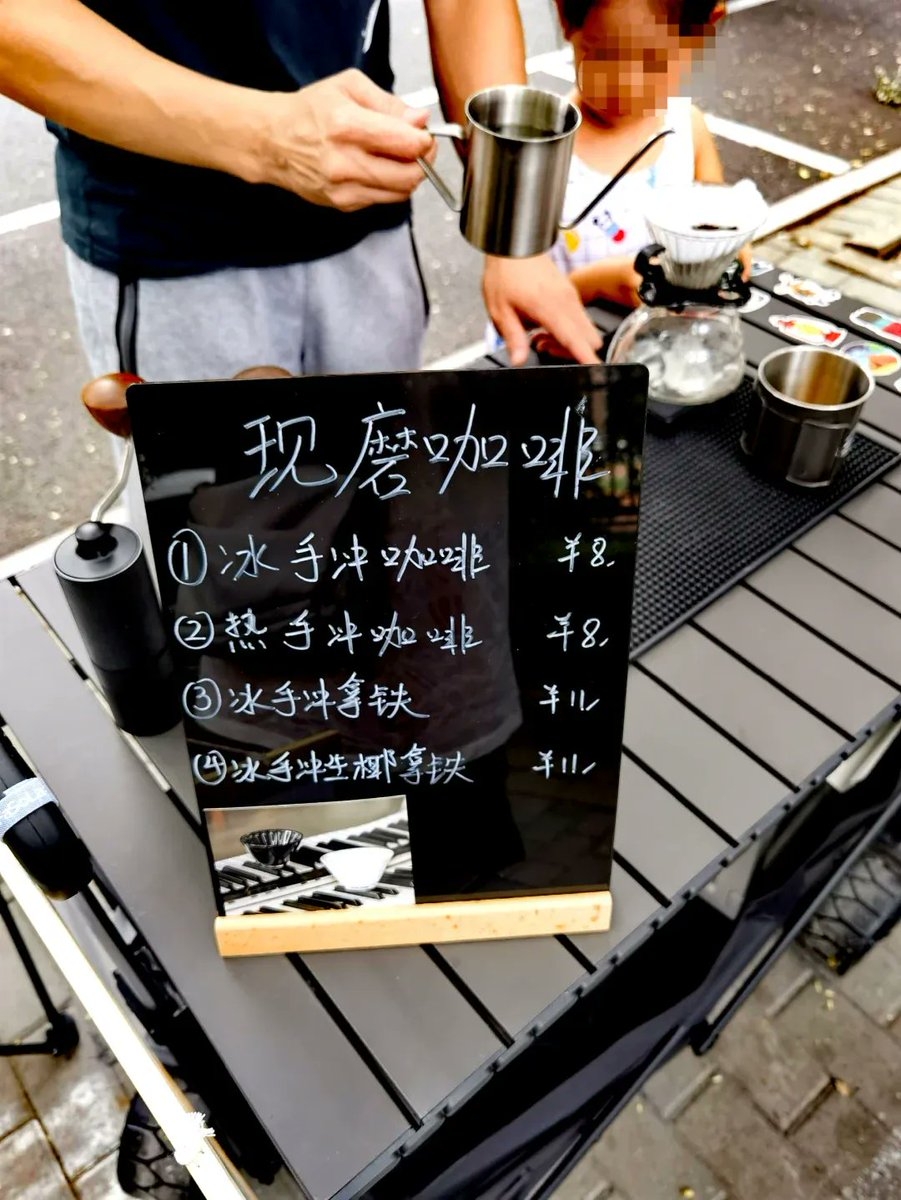 现磨咖啡
①冰手冲咖啡 ¥8.
②热手冲咖啡 ¥8.
③冰手冲拿铁 ¥11.
④冰手冲生椰拿铁 ¥11.